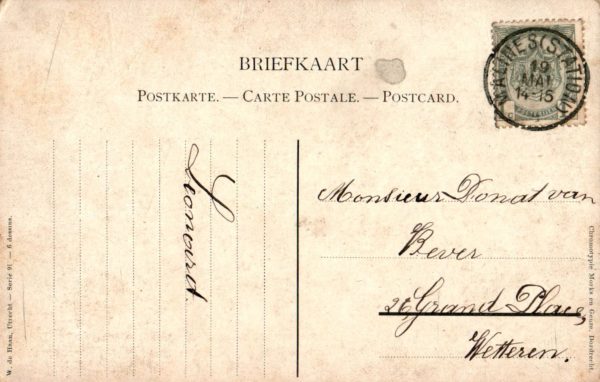 BRIEFKAART
POSTKARTE. — CARTE POSTALE. — POSTCARD.
MALINES (STATION)
19
MAI
14-15
Leonard.
Monsieur Donat van
Bever
26 Grand Place,
Wetteren.
W. de Haan, Utrecht — Serie 91 — 6 dessons.
Chromotypie Morks en Geuze, Dordrecht.